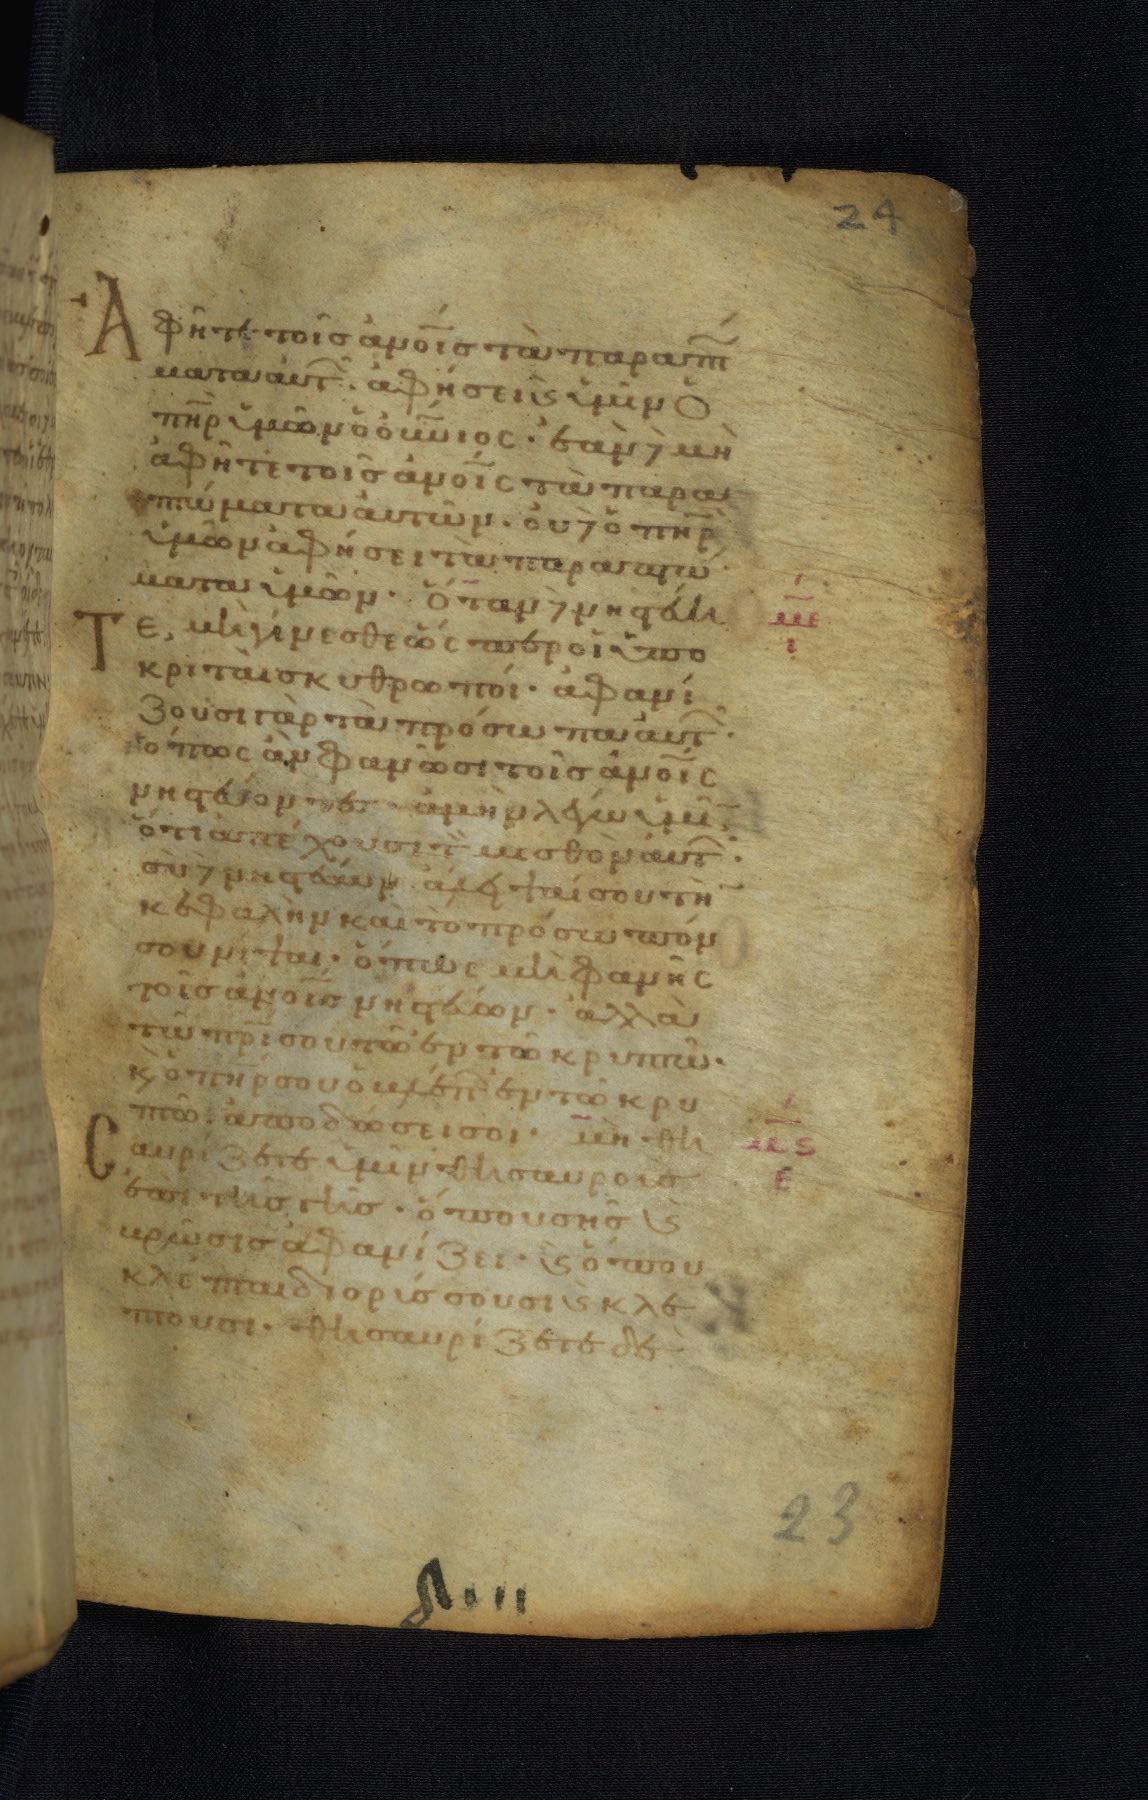 24
Ἀφῆτε τοῖς ἀνοῖς τὰ παραπτ
ματα αὐτ. ἀφήσει ϗ ὑμῖν ὁ
πηρ ὑμῶν ὁ οὐνιος. ἐὰν δὲ μὴ
ἀφῆτε τοῖς ἀνοις τὰ παρα
πτώματα αὐτῶν. οὐδὲ ὁ πηρ
ὑμῶν ἀφήσει τὰ παραπτώ
ματα ὑμῶν. ὅταν δὲ νηστεύη
με
ι
τε, μὴ γίνεσθε ὡς περ οἱ ὑπο
κριταὶ σκυθρωποί. ἀφανί
ζουσι γὰρ τὰ πρόσωπα αὐτ.
ὅπως ἂν φανῶσι τοῖς ἀνοις
νηστεύοντες. ἀμὴν λέγω ὑμῖ
ὅτι ἀπέχουσι τ μισθὸν αὐτ.
σὺ δὲ νηστεύων ἄλειψαί σου τὴ
κεφαλὴν καὶ τὸ πρόσωπόν
σου νίψαι. ὅπως μὴ φανῆς
τοῖς ἀνοις νηστεύων. ἀλλὰ
τῶ πρι σου τῶ ἐν τῶ κρυπτῶ.
ϗ ὁ πηρ σου ὁ βλέπων ἐν τῶ κρυ
πτῶ. ἀποδώσει σοι. μὴ θη
μς
ε
σαυρίζετε ὑμῖν θησαυροὺς
ἐπὶ τῆς γῆς. ὅπου σὴς ϗ
βρῶσις ἀφανίζει. ϗ ὅπου
κλέπται διορύσσουσι ϗ κλέ
πτουσι. θησαυρίζετε δὲ
23